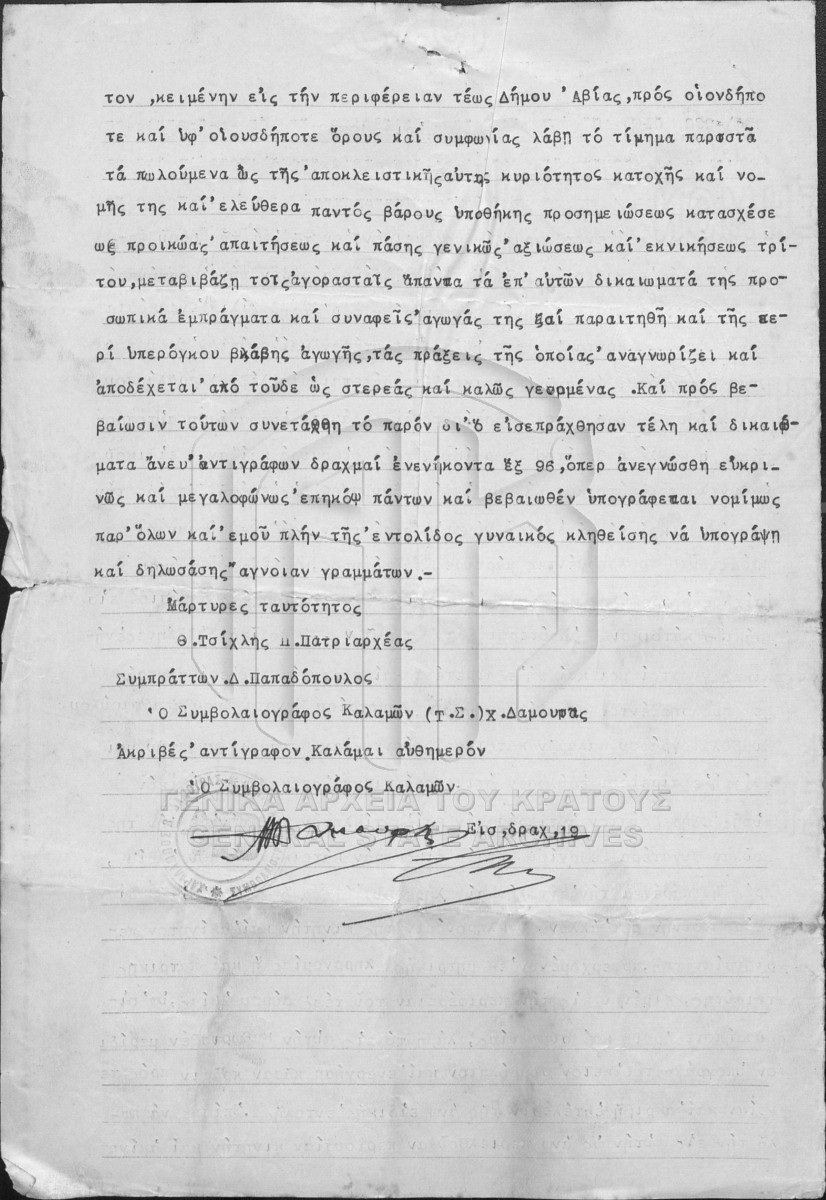 τον ,κειμένην εἰς τήν περιφέρειαν τέως Δήμου 'Αβίας,πρός οἱονδήπο
τε καί ὑφ'οἱουσδήποτε ὅρους καί συμφωνίας λάβῃ τό τίμημα παραστᾶ
τά πωλούμενα ὡς τῆς'αποκλειστικῆς αὐτῆς κυριότητος κατοχῆς καί νο-
μῆς της καί'ελεύθερα παντός βάρους ὑποθήκης προσημειώσεως κατασχέσε
ως προικώας'απαιτήσεως καί πάσης γενικῶς'αξιώσεως καί'εκνικήσεως τρί-
του,μεταβιβάζῃ τοῖς ἀγορασταῖς ἅπαντα τά ἐπ'αὐτῶν δικαιωματά της προ-
σωπικά ἐμπράγματα καί συναφεῖς'αγωγάς της ξαί παραιτηθῆ καί τῆς πε-
ρί ὑπερόγκου βλάβης ἀγωγῆς,τάς πράξεις τῆς ὁποίας'αναγνωρίζει καί
ἀποδέχεται'από τοῦδε ὡς στερεάς καί καλῶς γενομένας .Καί πρός βε-
βαίωσιν τούτων συνετάχθη τό παρόν δι'ὅ εἰσεπράχθησαν τέλη καί δικαιώ-
ματα ἄνευ'αντιγράφων δραχμαί ἐνενήκοντα ἕξ 96,ὅπερ ἀνεγνώσθη εὐκρι-
νῶς καί μεγαλοφώνως'επηκόῳ πάντων καί βεβαιωθέν ὑπογράφεται νομίμως
παρ'ὅλων καί'εμοῦ πλήν τῆς'εντολίδος γυναικός κληθείσης νά ὑπογράψῃ
καί δηλωσάσης'αγνοιαν γραμμάτων.-
Μάρτυρες ταυτότητος
Θ.Τσίχλης Π.Πατριαρχέας
Συμπράττων.Δ.Παπαδόπουλος
'Ο Συμβολαιογράφος Καλαμῶν (Τ.Σ.)Χ.Δαμουρας
Ἀκριβές'αντίγραφον.Καλάμαι αὐθημερόν
'Ο Συμβολαιογράφος Καλαμῶν
ΓΕΝΙΚΑ ΑΡΧΕΙΑ ΤΟΥ ΚΡΑΤΟΥΣ
Εἰσ,δραχ,19
GENERAL STATE ARCHIVES